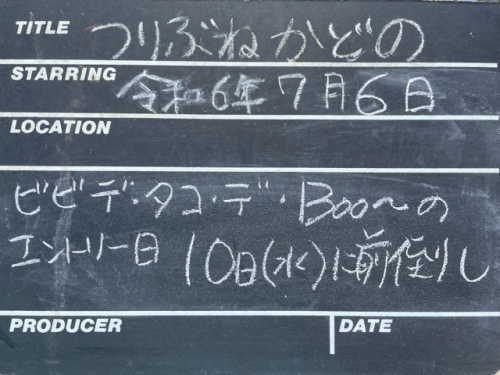 TITLE つりぶねかどの
STARRING 令和6年7月6日
LOCATION
ビビデ・タコ・デ・Boo〜の
エントリー日 10日(水)に前倒し
PRODUCER DATE